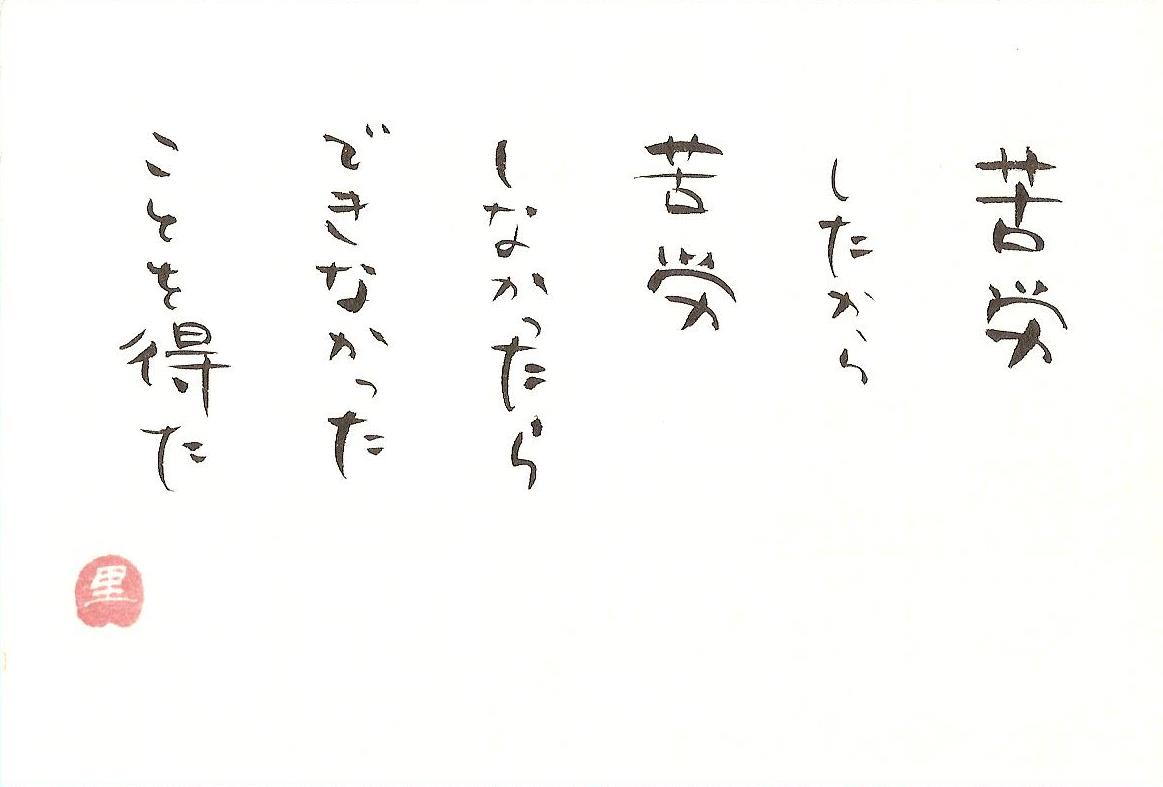 苦労
したから
苦労
しなかったら
できなかった
ことを得た
里